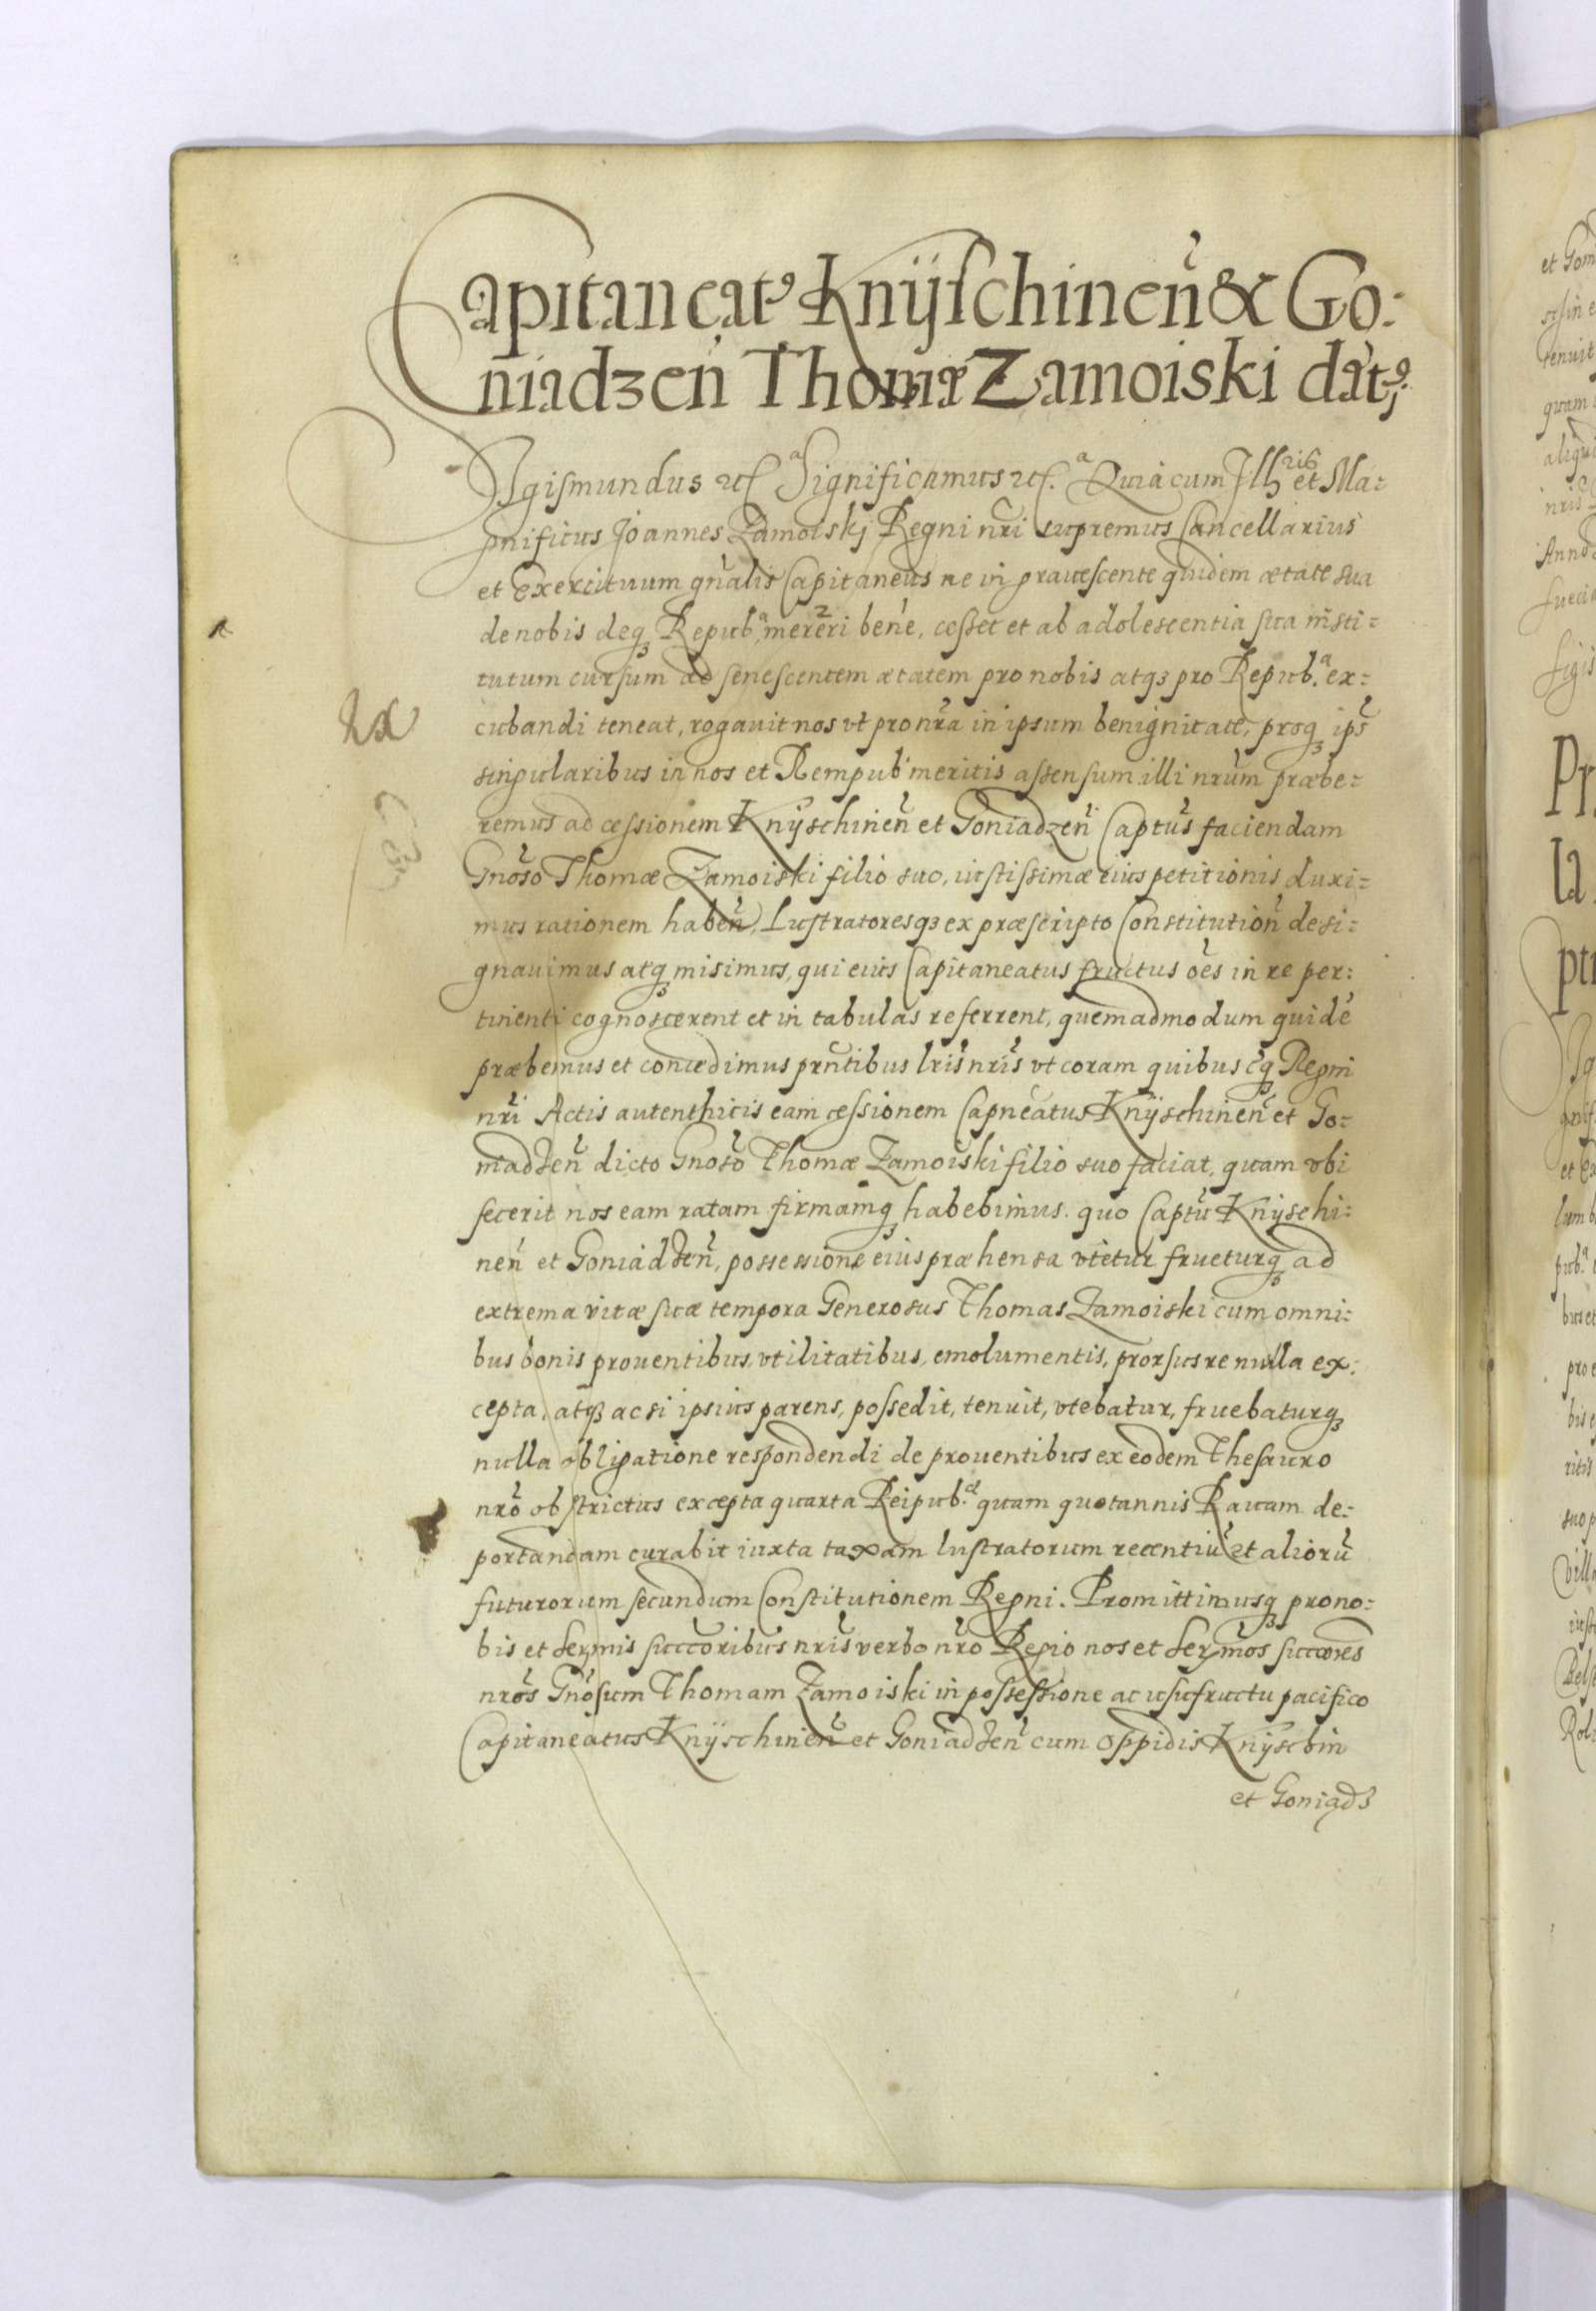 Capitaneat⁹ Knÿschinen̄ & Go:
niadzen̄ Thomæ Zamoiski dat⁹;
Sigismundus etc. Significamus etc. Quia cum Ill^ris et Ma:
gnificus Joannes Zamoiskj Regni nr̄i supremus Cancellarius
et Exercituum gn̄alis Capitaneus ne in grauescente quidem ætate sua
de nobis deq₃ Repub^a mereri bene, cesset et ab adolescentia sua insti:
tutum cursum ad senescentem ætatem pro nobis atq₃ pro Repub.^a ex:
cubandi teneat, rogauit nos vt pro nr̄a in ipsum benignitate, proq₃ ips̄
singularibus in nos et Rempub' meritis assensum illi nrūm præbe:
remus ad cessionem Knÿschinen̄ et Goniadzen̄ Captūs faciendam
Gnōso Thomæ Zamoiski filio suo, iustissimæ eius petitionis duxi:
mus rationem haben̄, Lustratoresq₃ ex præscripto Constitution̄ desi:
gnauimus atq₃ misimus, qui eius Capitaneatus fructus oēs in re per:
tinenti cognoscerent et in tabulas referrent, quemadmodum quidē
præbemus et concedimus prn̄tibus lr̄is nr̄is vt coram quibuscq₃ Regni
nr̄i Actis autenthicis eam cessionem Capnēatus Knÿschinen̄ et Go:
niadzen̄ dicto Gnōso Thomæ Zamoiski filio suo faciat, quam vbi
fecerit nos eam ratam firmamq₃ habebimus. quo Captū Knÿschi:
nen̄ et Goniadzen̄, possessione eius præhensa vtetur frueturq₃ ad
extrema vitæ suæ tempora Generosus Thomas Zamoiski cum omni:
bus bonis prouentibus, vtilitatibus, emolumentis, prorsus re nulla ex:
cepta, atq₃ ac si ipsius parens, possedit, tenuit, vtebatur, fruebaturq₃
nulla obligatione respondendi de prouentibus ex eodem Thesauro
nrō obstrictus excepta quarta Reipub.^ae quam quotannis Rauam de:
portandam curabit iuxta taxam lustratorum recentiū et aliorū
futurorum secundum Constitutionem Regni. Promittimusq₃ pro no:
bis et Serm̄is succcōribus nr̄is verbo nrō Regio nos et Serm̄os succōres
nrōs Gnōsum Thomam Zamoiski in possessione ac usufructu pacifico
Capitaneatus Knÿschinen̄ et Goniadzen̄ cum oppidis Knÿschin
et Goniadz